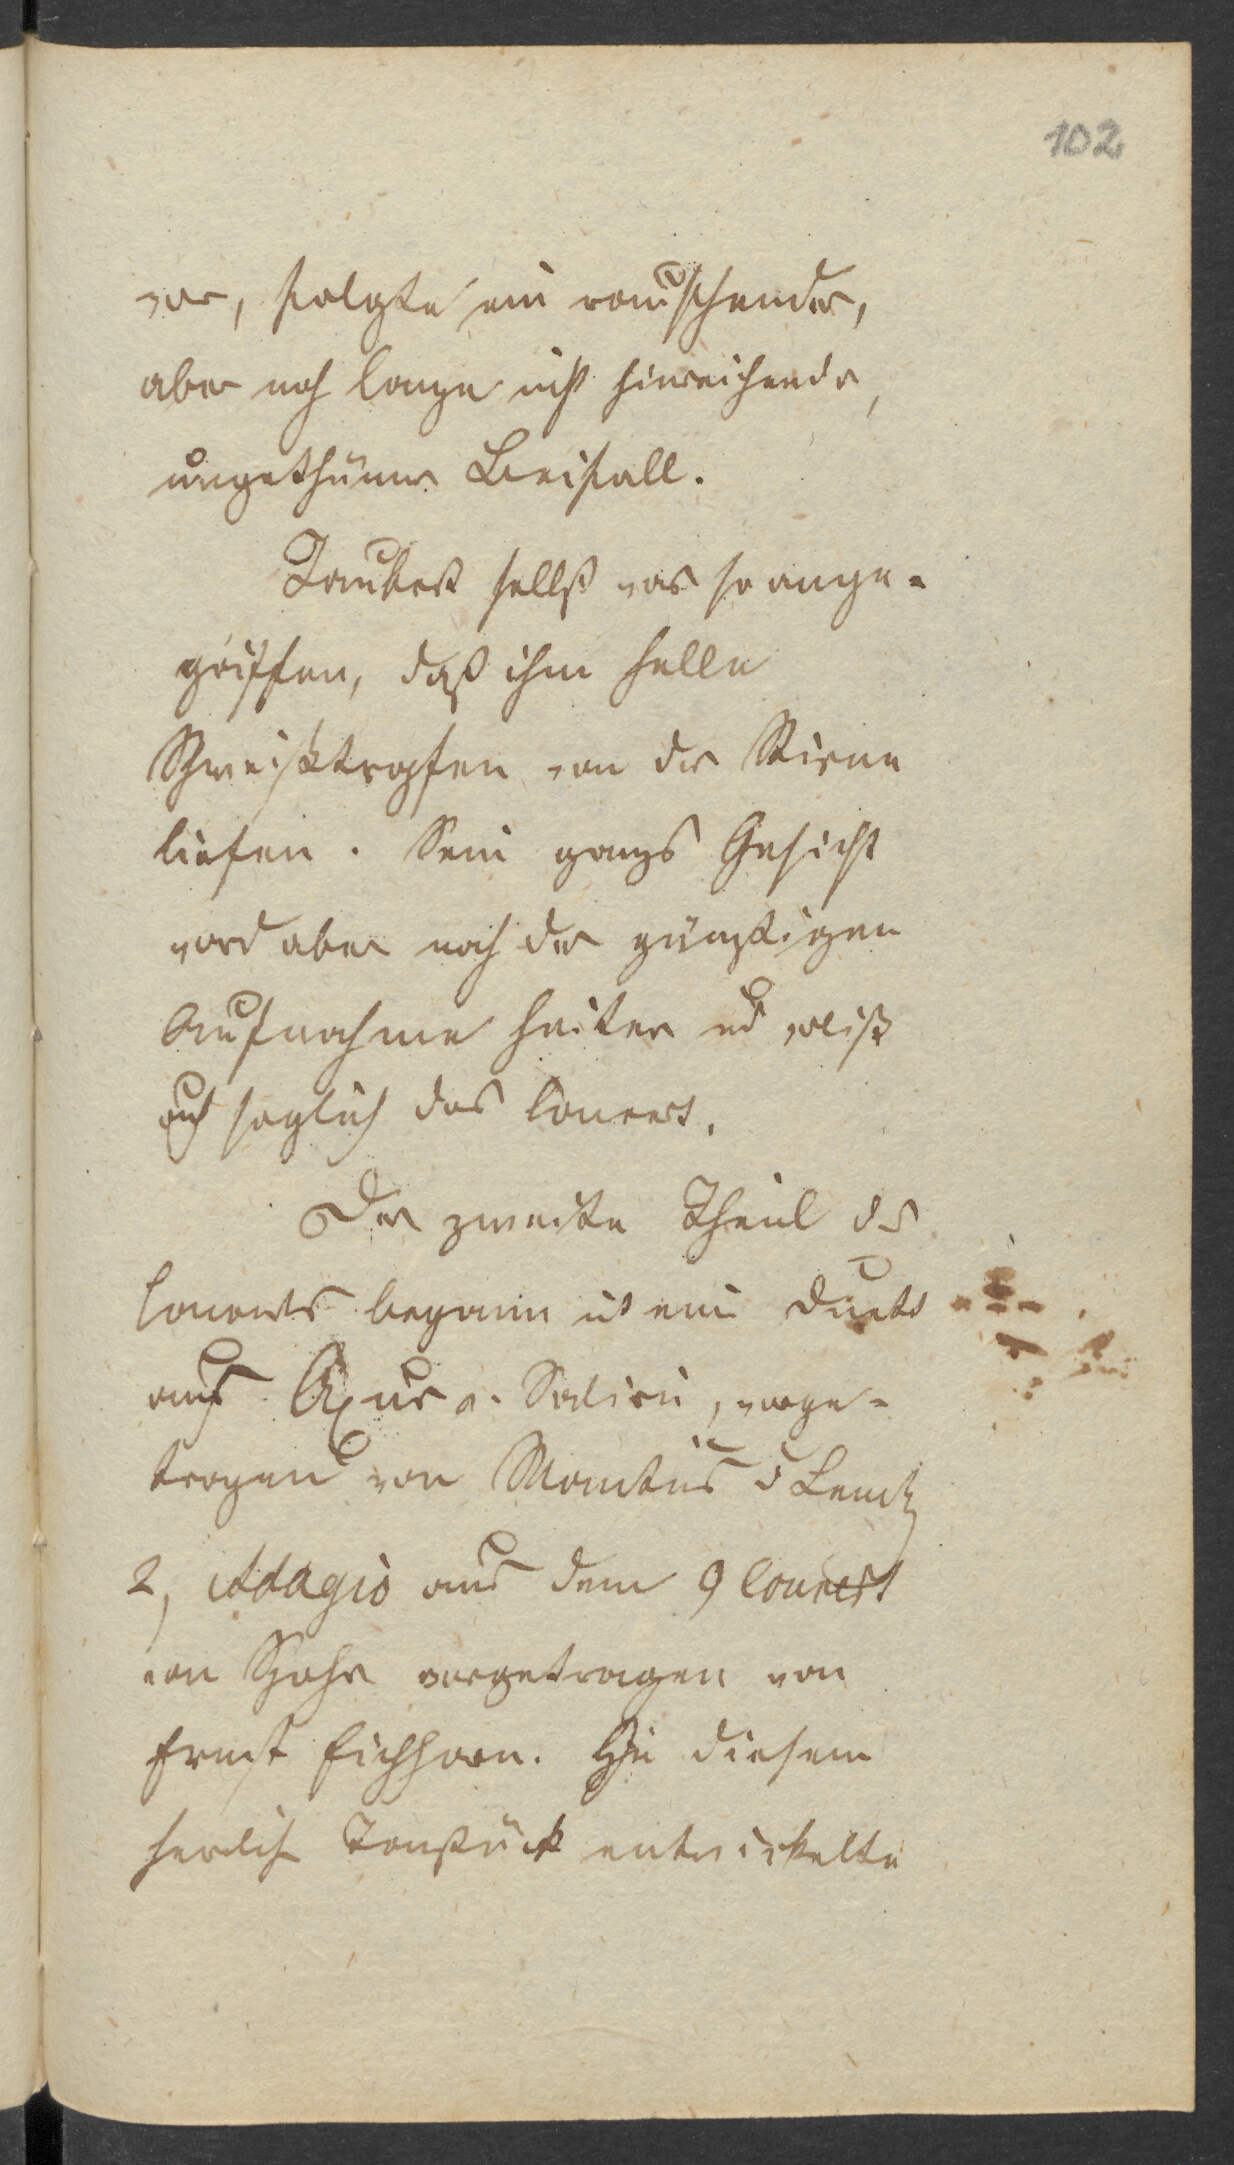 102
war, folgte ein rauschender,
aber noch lange nicht hinreichende,
ungethümer Beifall.
Taubert selbst war so ange-
griffen, daß ihm helle
Schweißtropfen von der Stirne
liefen. Sein ganzs Gesicht
ward aber nach der günstigen
Aufnahme heiter ud
auch sogleich das Concert.
Der zweite Theil ds
Concerts begann mit ein Duett
aus Axur v. Salieri, vorge-
tragen von Mantius u
2, Adagio aus dem 9 Concert
von Spohr vorgetragen von
Ernst Eichhorn. In diesem
herrlich Tonstück entwickelte